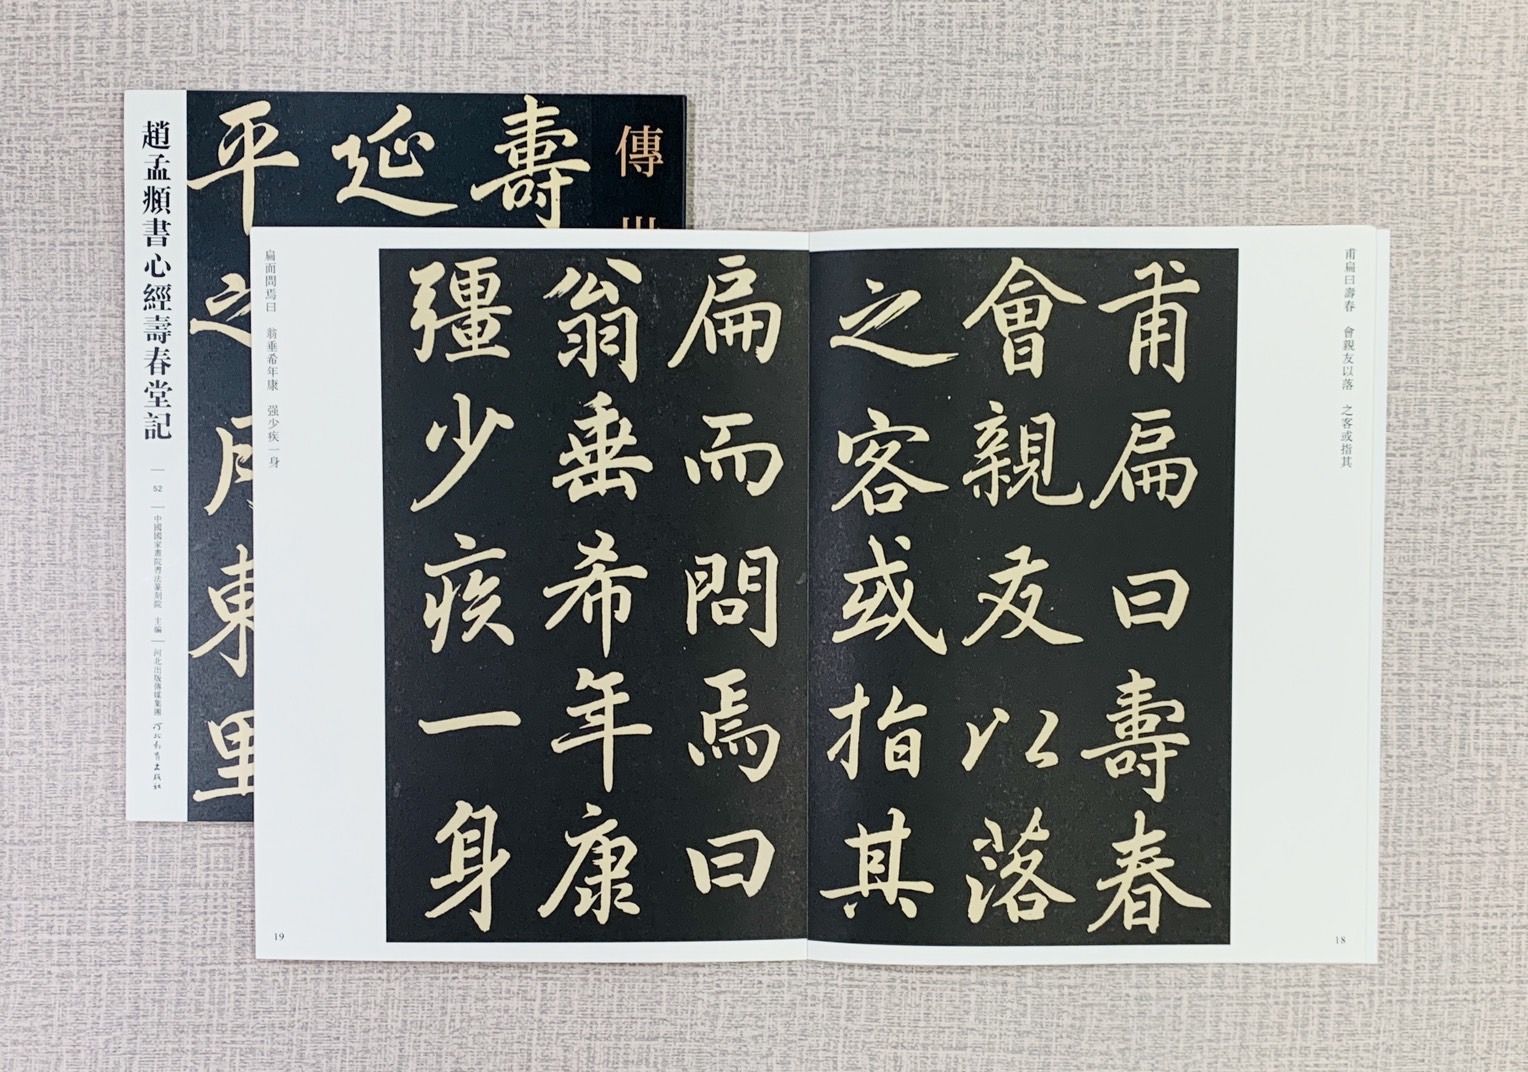 傳
壽
延
平之
東里
趙孟頫書心經壽春堂記
52
中國國家畫院書法篆刻院 主編
河北出版傳媒集團
河北教育出版社
甫扁曰壽春 會親友以落 之客或指其
甫扁曰壽春
會親友以落
之客或指其
18
扁而問焉曰
翁垂希年康
彊少疾一身
扁而問焉曰 翁垂希年康 强少疾一身
19